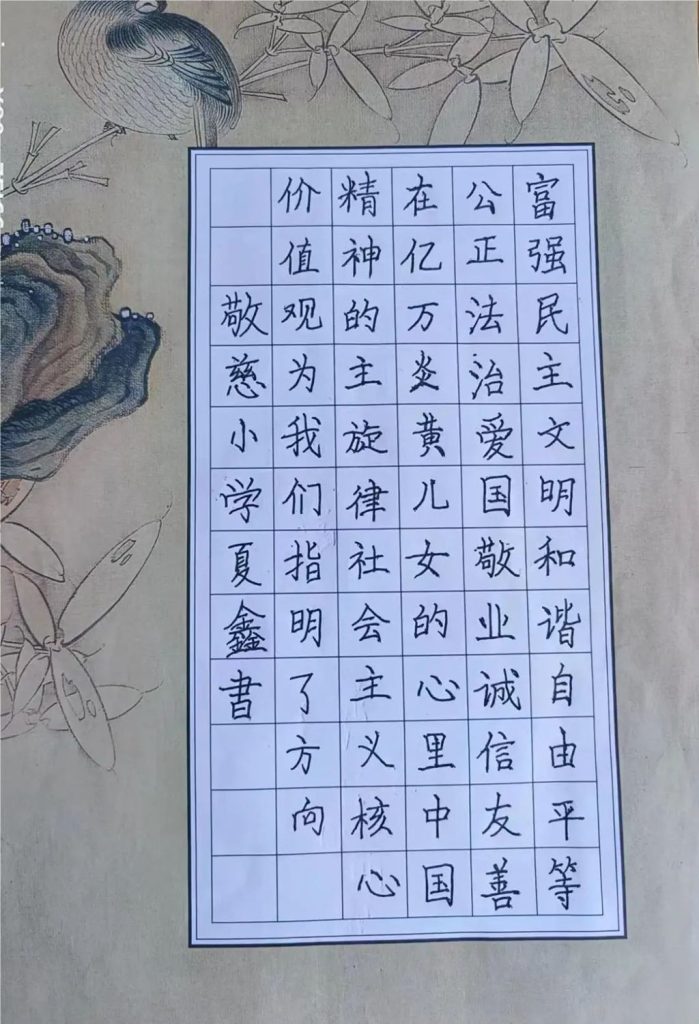 富强民主文明和谐自由平等
公正法治爱国敬业诚信友善
在亿万炎黄儿女的心里中国
精神的主旋律社会主义核心
价值观为我们指明了方向
敬慈小学夏鑫书